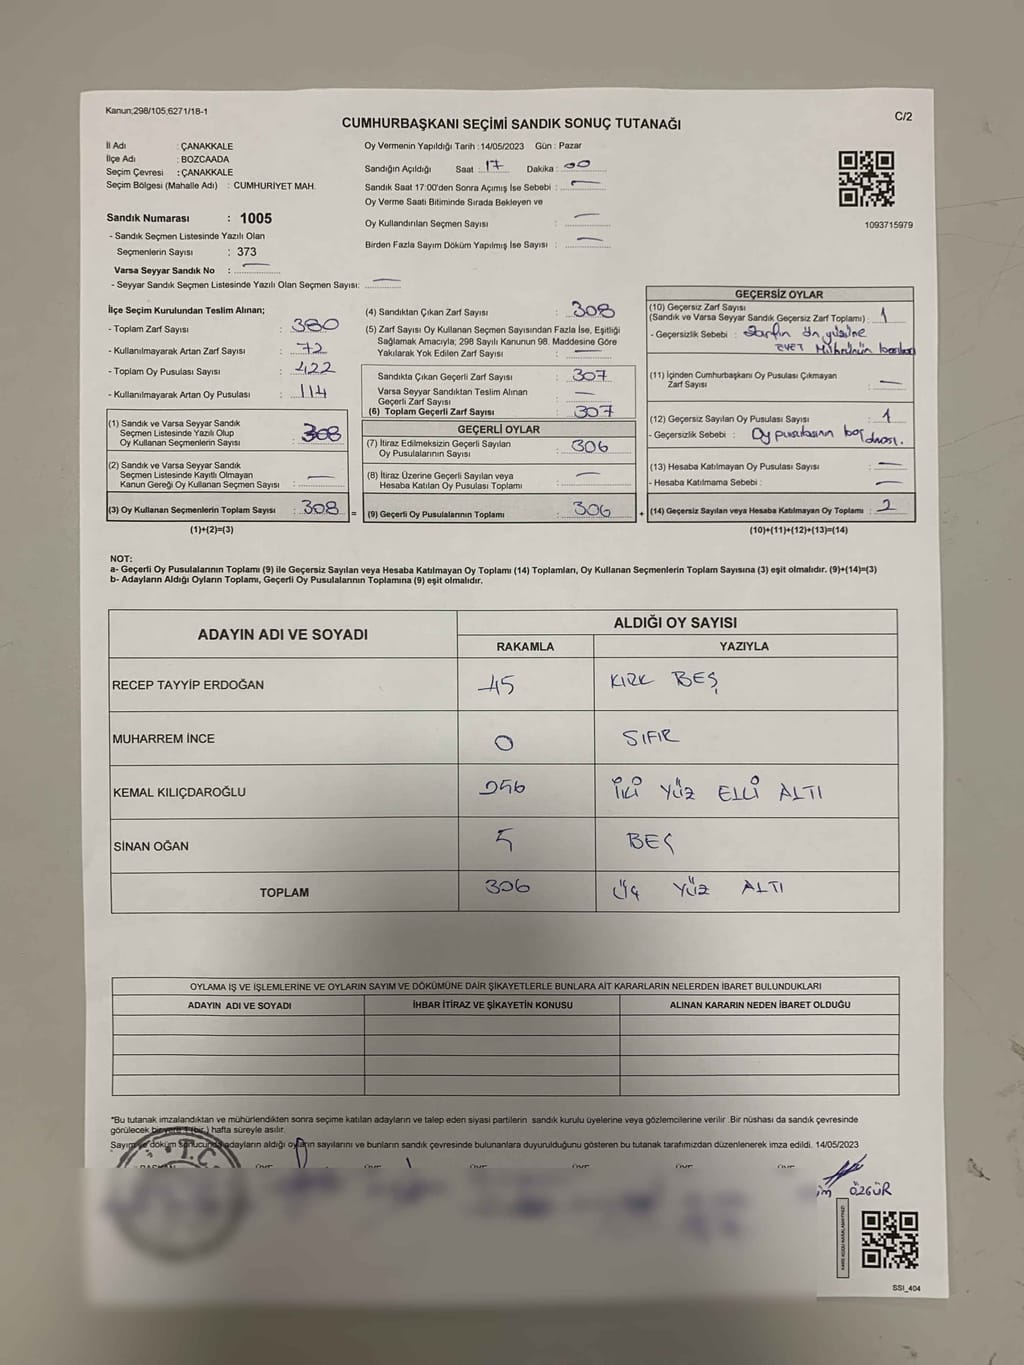 Kanun;298/105;6271/18-1
C/2
CUMHURBAŞKANI SEÇİMİ SANDIK SONUÇ TUTANAĞI
İl Adı : ÇANAKKALE
İlçe Adı : BOZCAADA
Seçim Çevresi : ÇANAKKALE
Seçim Bölgesi (Mahalle Adı) : CUMHURİYET MAH.
Sandık Numarası : 1005
- Sandık Seçmen Listesinde Yazılı Olan
Seçmenlerin Sayısı : 373
Varsa Seyyar Sandık No :
- Seyyar Sandık Seçmen Listesinde Yazılı Olan Seçmen Sayısı:
Oy Vermenin Yapıldığı Tarih : 14/05/2023 Gün : Pazar
Sandığın Açıldığı Saat : 17 Dakika : 00
Sandık Saat 17:00'den Sonra Açımış İse Sebebi :
Oy Verme Saati Bitiminde Sırada Bekleyen ve
Oy Kullandırılan Seçmen Sayısı :
Birden Fazla Sayım Döküm Yapılmış İse Sayısı :
1093715979
İlçe Seçim Kurulundan Teslim Alınan;
- Toplam Zarf Sayısı : 380
- Kullanılmayarak Artan Zarf Sayısı : 72
- Toplam Oy Pusulası Sayısı : 422
- Kullanılmayarak Artan Oy Pusulası : 114
(1) Sandık ve Varsa Seyyar Sandık
Seçmen Listesinde Yazılı Olup
Oy Kullanan Seçmenlerin Sayısı : 308
(2) Sandık ve Varsa Seyyar Sandık
Seçmen Listesinde Kayıtlı Olmayan
Kanun Gereği Oy Kullanan Seçmen Sayısı :
(3) Oy Kullanan Seçmenlerin Toplam Sayısı : 308
(1)+(2)=(3)
(4) Sandıktan Çıkan Zarf Sayısı : 308
(5) Zarf Sayısı Oy Kullanan Seçmen Sayısından Fazla İse, Eşitliği
Sağlamak Amacıyla; 298 Sayılı Kanunun 98. Maddesine Göre
Yakılarak Yok Edilen Zarf Sayısı :
Sandıkta Çıkan Geçerli Zarf Sayısı : 307
Varsa Seyyar Sandıktan Teslim Alınan
Geçerli Zarf Sayısı :
(6) Toplam Geçerli Zarf Sayısı : 307
GEÇERLİ OYLAR
(7) İtiraz Edilmeksizin Geçerli Sayılan
Oy Pusulalarının Sayısı : 306
(8) İtiraz Üzerine Geçerli Sayılan veya
Hesaba Katılan Oy Pusulası Toplamı :
= (9) Geçerli Oy Pusulalarının Toplamı : 306 +
GEÇERSİZ OYLAR
(10) Geçersiz Zarf Sayısı
(Sandık ve Varsa Seyyar Sandık Geçersiz Zarf Toplamı) : 1
- Geçersizlik Sebebi : Zarfın ön yüzüne
EVET Mührünün
(11) İçinden Cumhurbaşkanı Oy Pusulası Çıkmayan
Zarf Sayısı :
(12) Geçersiz Sayılan Oy Pusulası Sayısı : 1
- Geçersizlik Sebebi : Oy pusulasının boş olması.
(13) Hesaba Katılmayan Oy Pusulası Sayısı :
- Hesaba Katılmama Sebebi :
(14) Geçersiz Sayılan veya Hesaba Katılmayan Oy Toplamı : 2
(10)+(11)+(12)+(13)=(14)
NOT:
a- Geçerli Oy Pusulalarının Toplamı (9) ile Geçersiz Sayılan veya Hesaba Katılmayan Oy Toplamı (14) Toplamları, Oy Kullanan Seçmenlerin Toplam Sayısına (3) eşit olmalıdır. (9)+(14)=(3)
b- Adayların Aldığı Oyların Toplamı, Geçerli Oy Pusulalarının Toplamına (9) eşit olmalıdır.
ADAYIN ADI VE SOYADI
ALDIĞI OY SAYISI
RAKAMLA YAZIYLA
RECEP TAYYİP ERDOĞAN 45 KIRK BEŞ
MUHARREM İNCE 0 SIFIR
KEMAL KILIÇDAROĞLU 256 İKİ YÜZ ELLİ ALTI
SİNAN OĞAN 5 BEŞ
TOPLAM 306 ÜÇ YÜZ ALTI
OYLAMA İŞ VE İŞLEMLERİNE VE OYLARIN SAYIM VE DÖKÜMÜNE DAİR ŞİKAYETLERLE BUNLARA AİT KARARLARIN NELERDEN İBARET BULUNDUKLARI
ADAYIN ADI VE SOYADI İHBAR İTİRAZ VE ŞİKAYETİN KONUSU ALINAN KARARIN NEDEN İBARET OLDUĞU
*Bu tutanak imzalandıktan ve mühürlendikten sonra seçime katılan adayların ve talep eden siyasi partilerin sandık kurulu üyelerine veya gözlemcilerine verilir. Bir nüshası da sandık çevresinde
görülecek bir yere 1 (bir) hafta süreyle asılır.
Sayım ve döküm sonucunda adayların aldığı oyların sayılarını ve bunların sandık çevresinde bulunanlara duyurulduğunu gösteren bu tutanak tarafımızdan düzenlenerek imza edildi. 14/05/2023
T.C.
ÖZGÜR
SSI_404